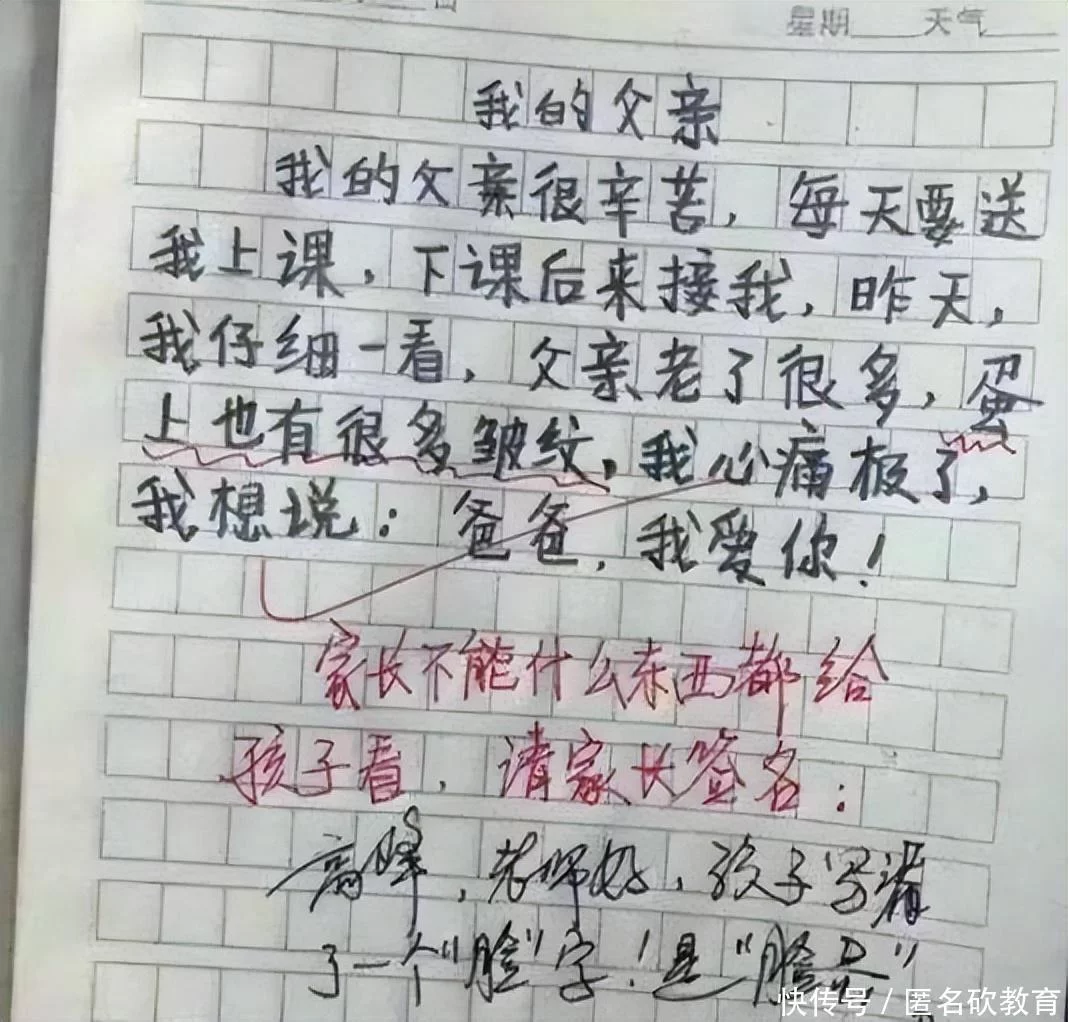 星期 天气
我的父亲
我的父亲很辛苦，每天要送
我上课，下课后来接我，昨天，
我仔细一看，父亲老了很多，蛋
上也有很多皱纹，我心痛极了，
我想说：爸爸，我爱你！
家长不能什么东西都给
孩子看，请家长签名：
高峰，老师好，孩子写漏
了一个“脸”字！是“脸蛋”
快传号／匿名砍教育